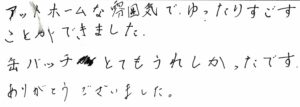 アットホームな雰囲気で、ゆったりすごす
ことができました。
缶バッチ とてもうれしかったです。
ありがとうございました。